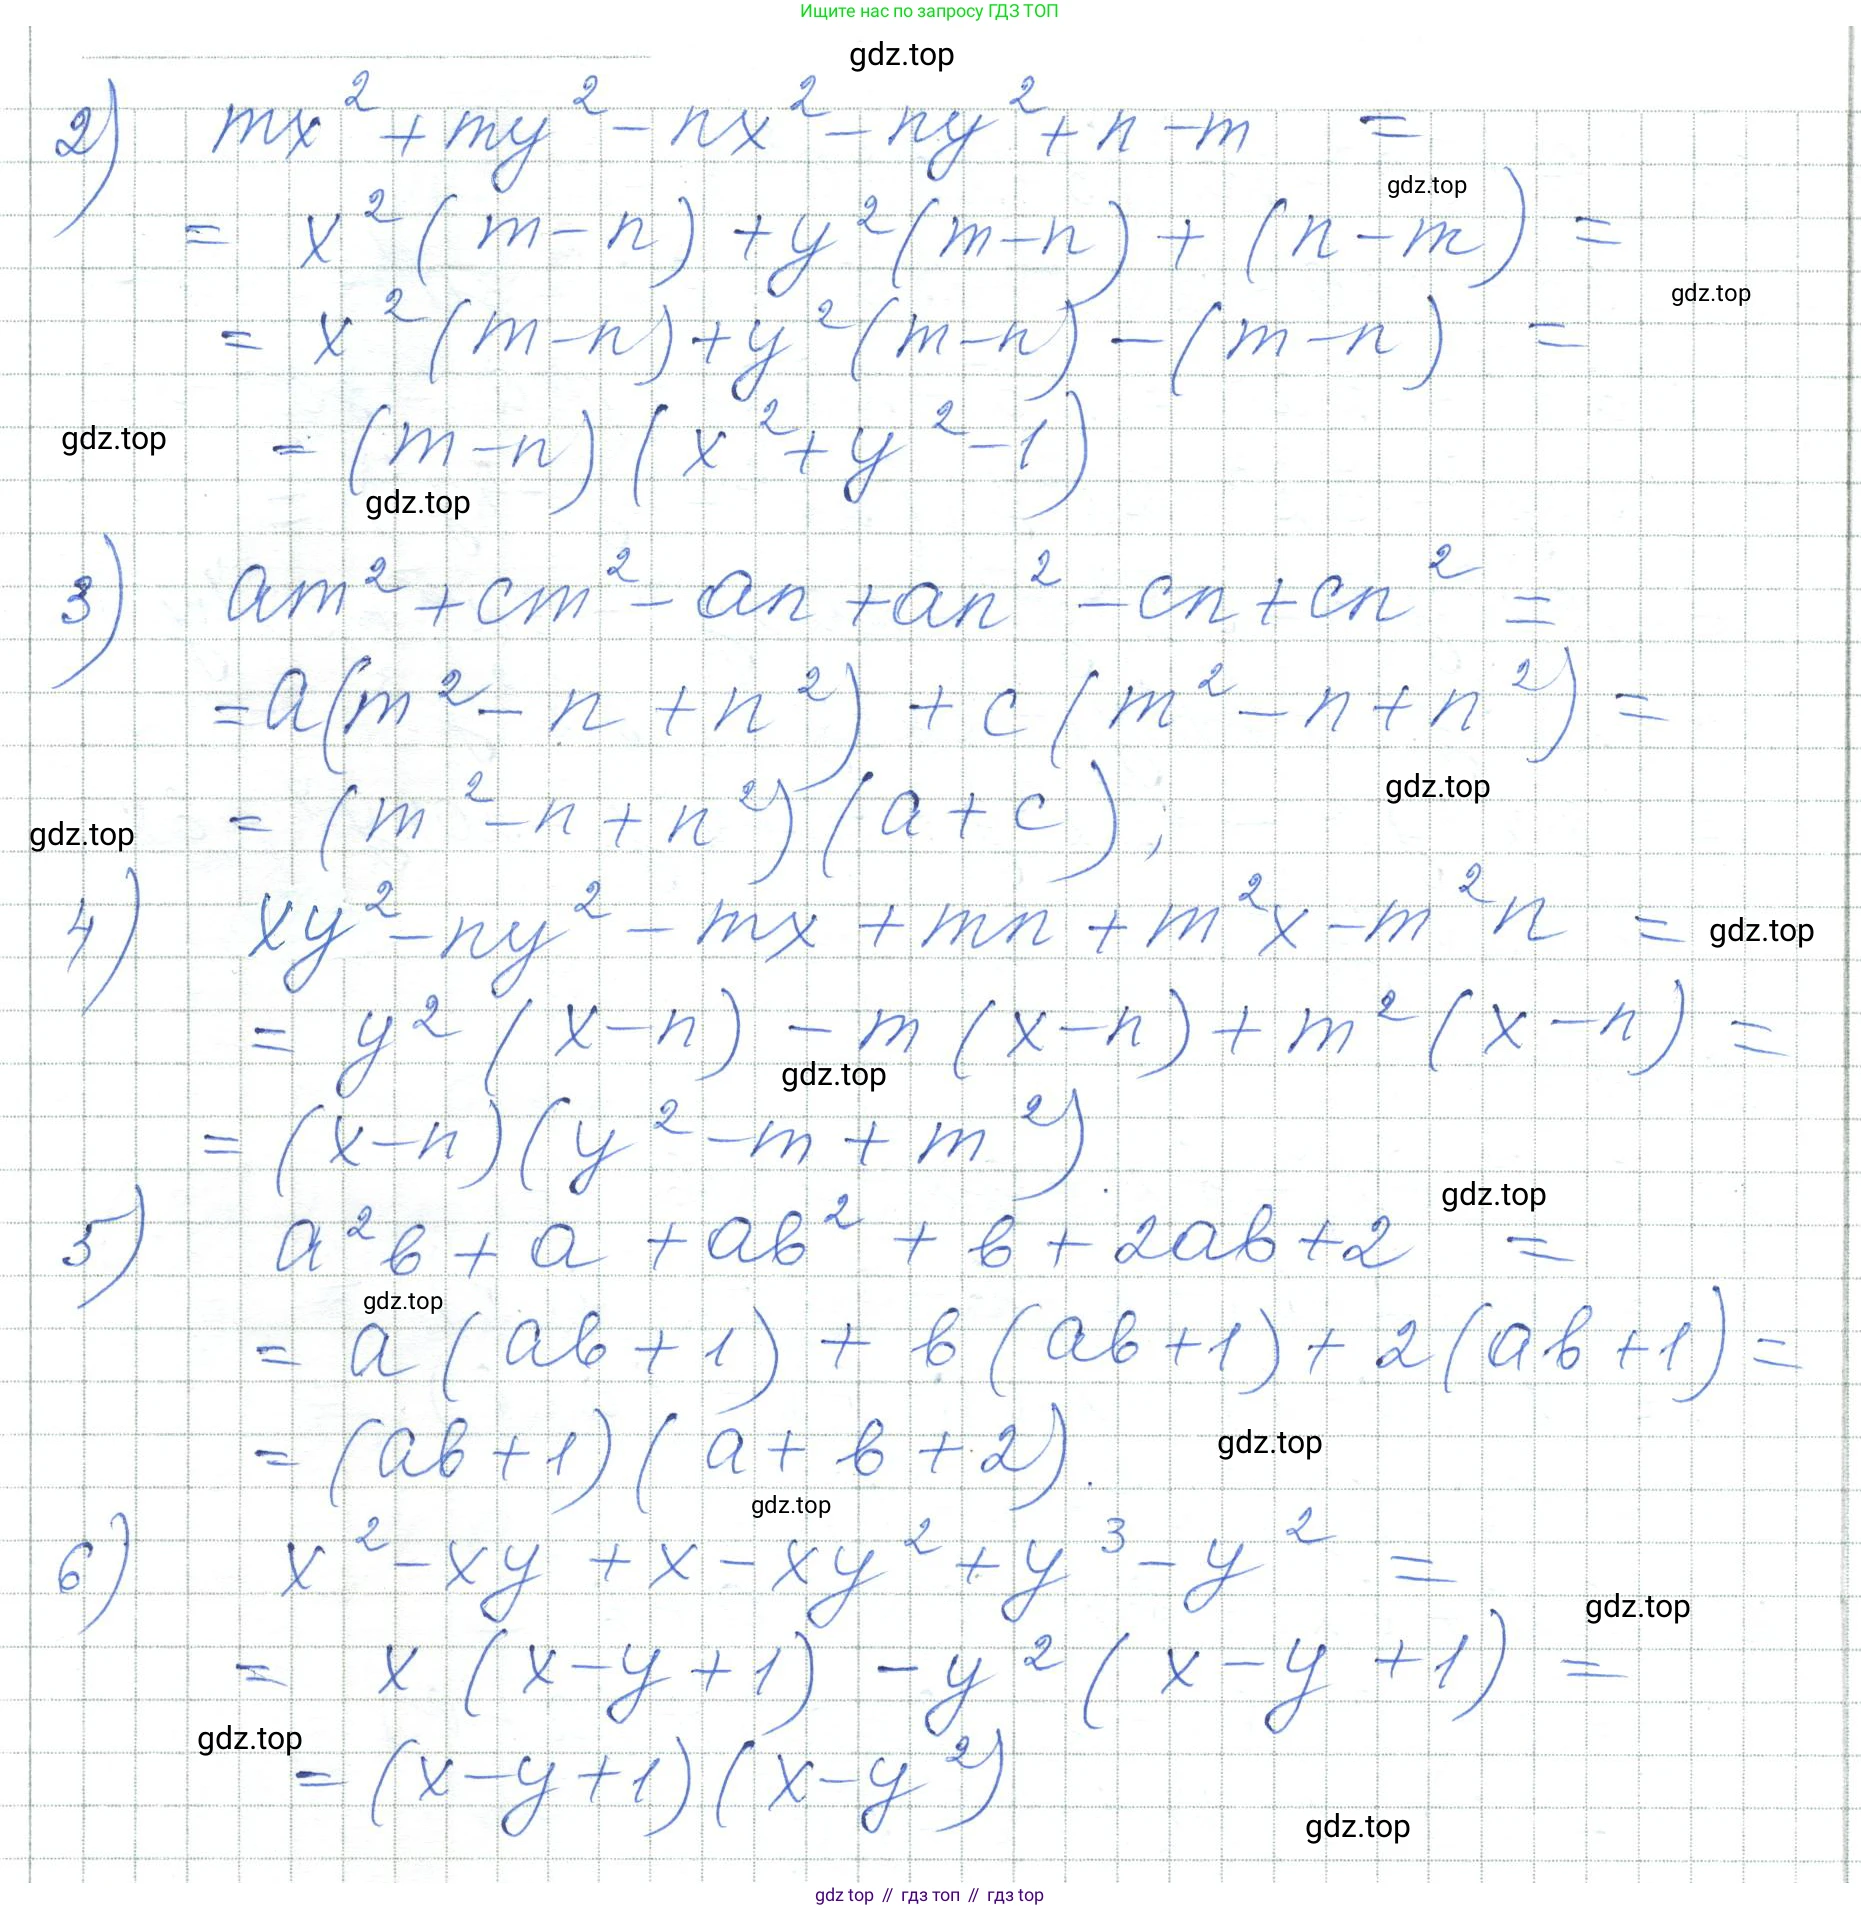 Ищите нас по запросу ГДЗ ТОП
gdz.top
2) mx² + my² - nx² - ny² + n - m =
gdz.top
= x² (m - n) + y² (m - n) + (n - m) =
gdz.top
= x² (m - n) + y² (m - n) - (m - n) =
gdz.top
= (m - n) (x² + y² - 1)
gdz.top
3) am² + cm² - an + an² - cn + cn² =
= a(m² - n + n²) + c (m² - n + n²) =
gdz.top
= (m² - n + n²) (a + c);
gdz.top
4) xy² - ny² - mx + mn + m²x - m²n =
gdz.top
= y² (x - n) - m (x - n) + m² (x - n) =
gdz.top
= (x - n) (y² - m + m²).
gdz.top
5) a²b + a + ab² + b + 2ab + 2 =
gdz.top
= a (ab + 1) + b (ab + 1) + 2 (ab + 1) =
= (ab + 1) (a + b + 2).
gdz.top
gdz.top
6) x² - xy + x - xy² + y³ - y² =
gdz.top
= x (x - y + 1) - y² (x - y + 1) =
gdz.top
= (x - y + 1) (x - y²)
gdz.top
gdz top // гдз топ // гдз top